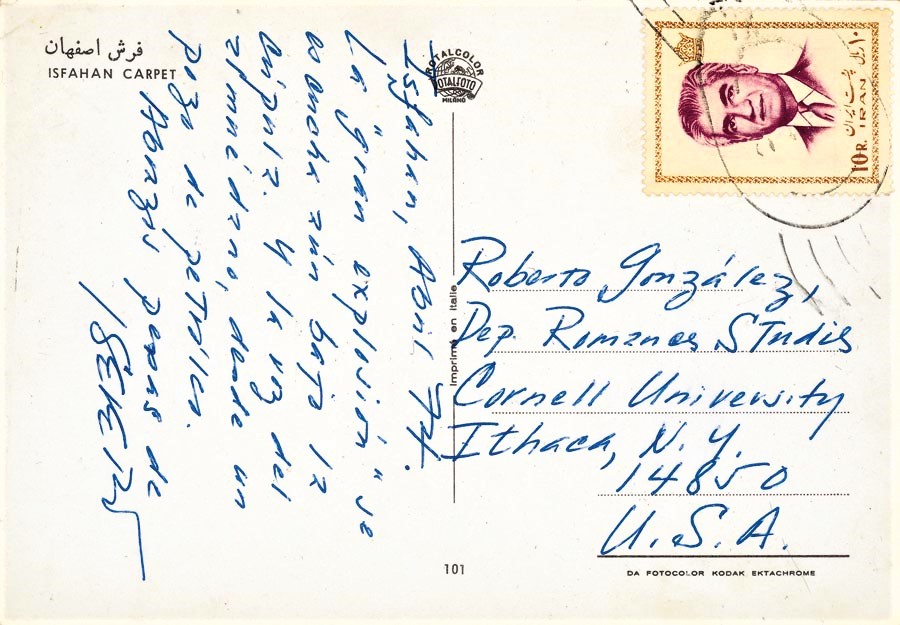 فرش اصفهان
ISFAHAN CARPET
Isfahan, Abril 74.
La "gran explosión" se
escucha aún bajo la
cúpula. Y la voz del
desde un
pozo de petróleo.
Abrazos persas de
ROTALCOLOR
ROTALFOTO
MILANO
Imprimé en Italie
۱۰ ریال
پست ایران
10R. IRAN
Roberto González,
Dep. Romances Studies
Cornell University
Ithaca, N.Y.
14850
U.S.A.
101
DA FOTOCOLOR KODAK EKTACHROME